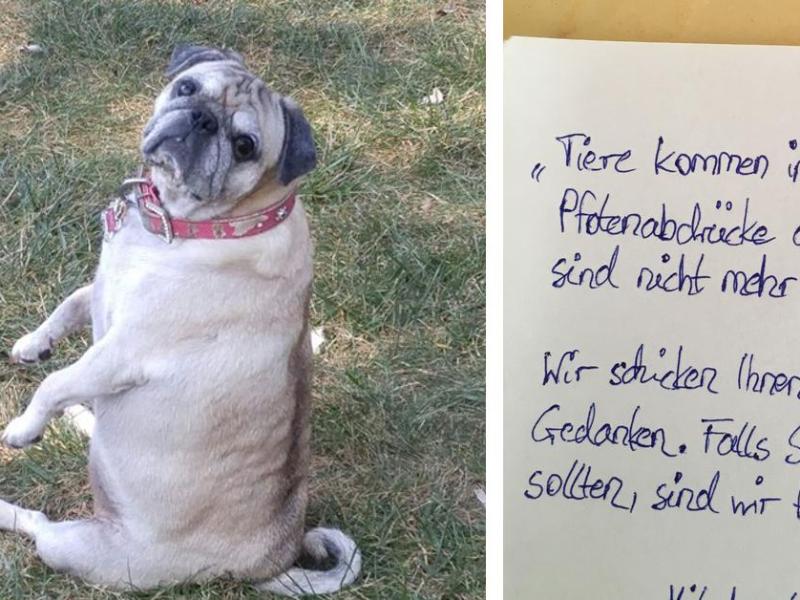 „Tiere kommen
Pfotenabdrücke
sind nicht mehr
Wir schicken Ihnen
Gedanken. Falls S
sollten, sind wir